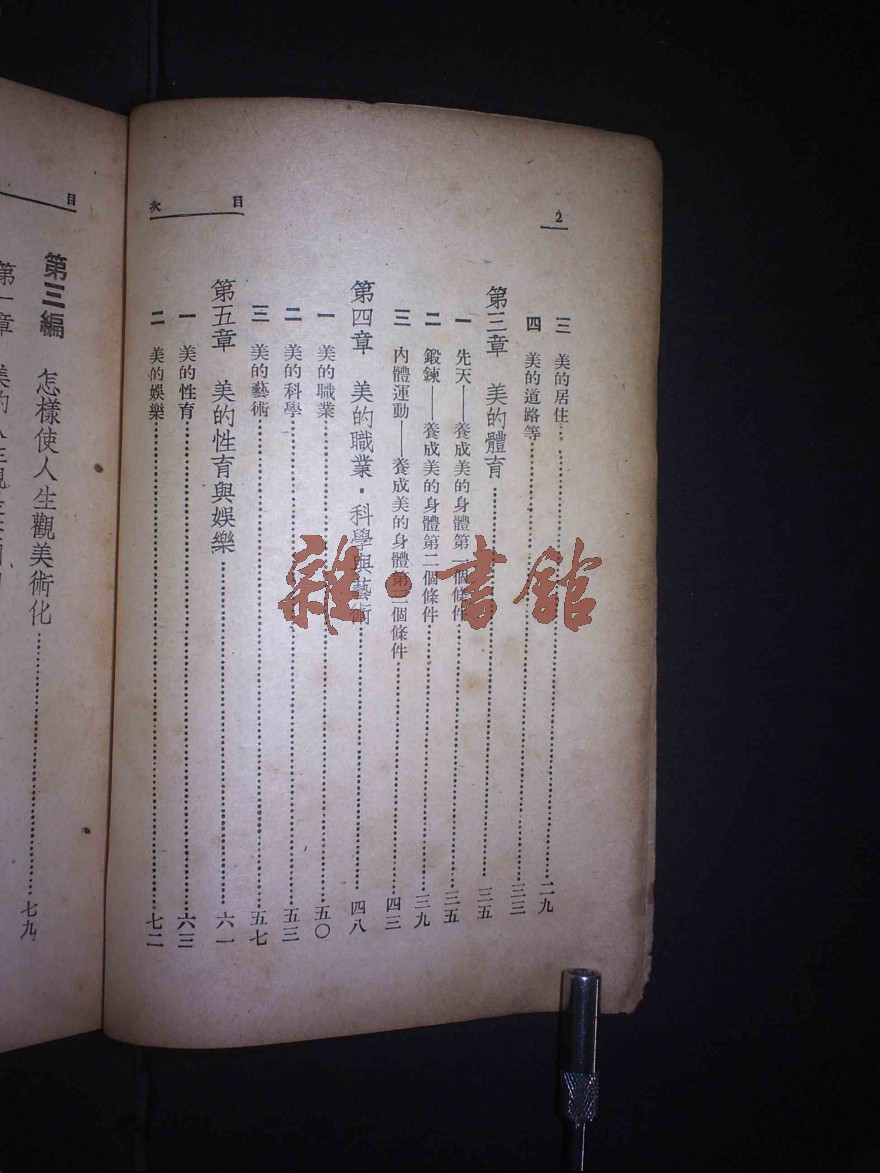 2
目次
三 美的居住……二九
四 美的道路等……三三
第三章 美的體育……三五
一 先天——養成美的身體第一個條件……三五
二 鍛鍊——養成美的身體第二個條件……三九
三 內體運動——養成美的身體第三個條件……四三
第四章 美的職業・科學與藝術……四八
一 美的職業……五〇
二 美的科學……五三
三 美的藝術……五七
第五章 美的性育與娛樂……六一
一 美的性育……六三
二 美的娛樂……七二
目
第三編 怎樣使人生觀美術化……七九
第一章 美的人生觀
雜・書館